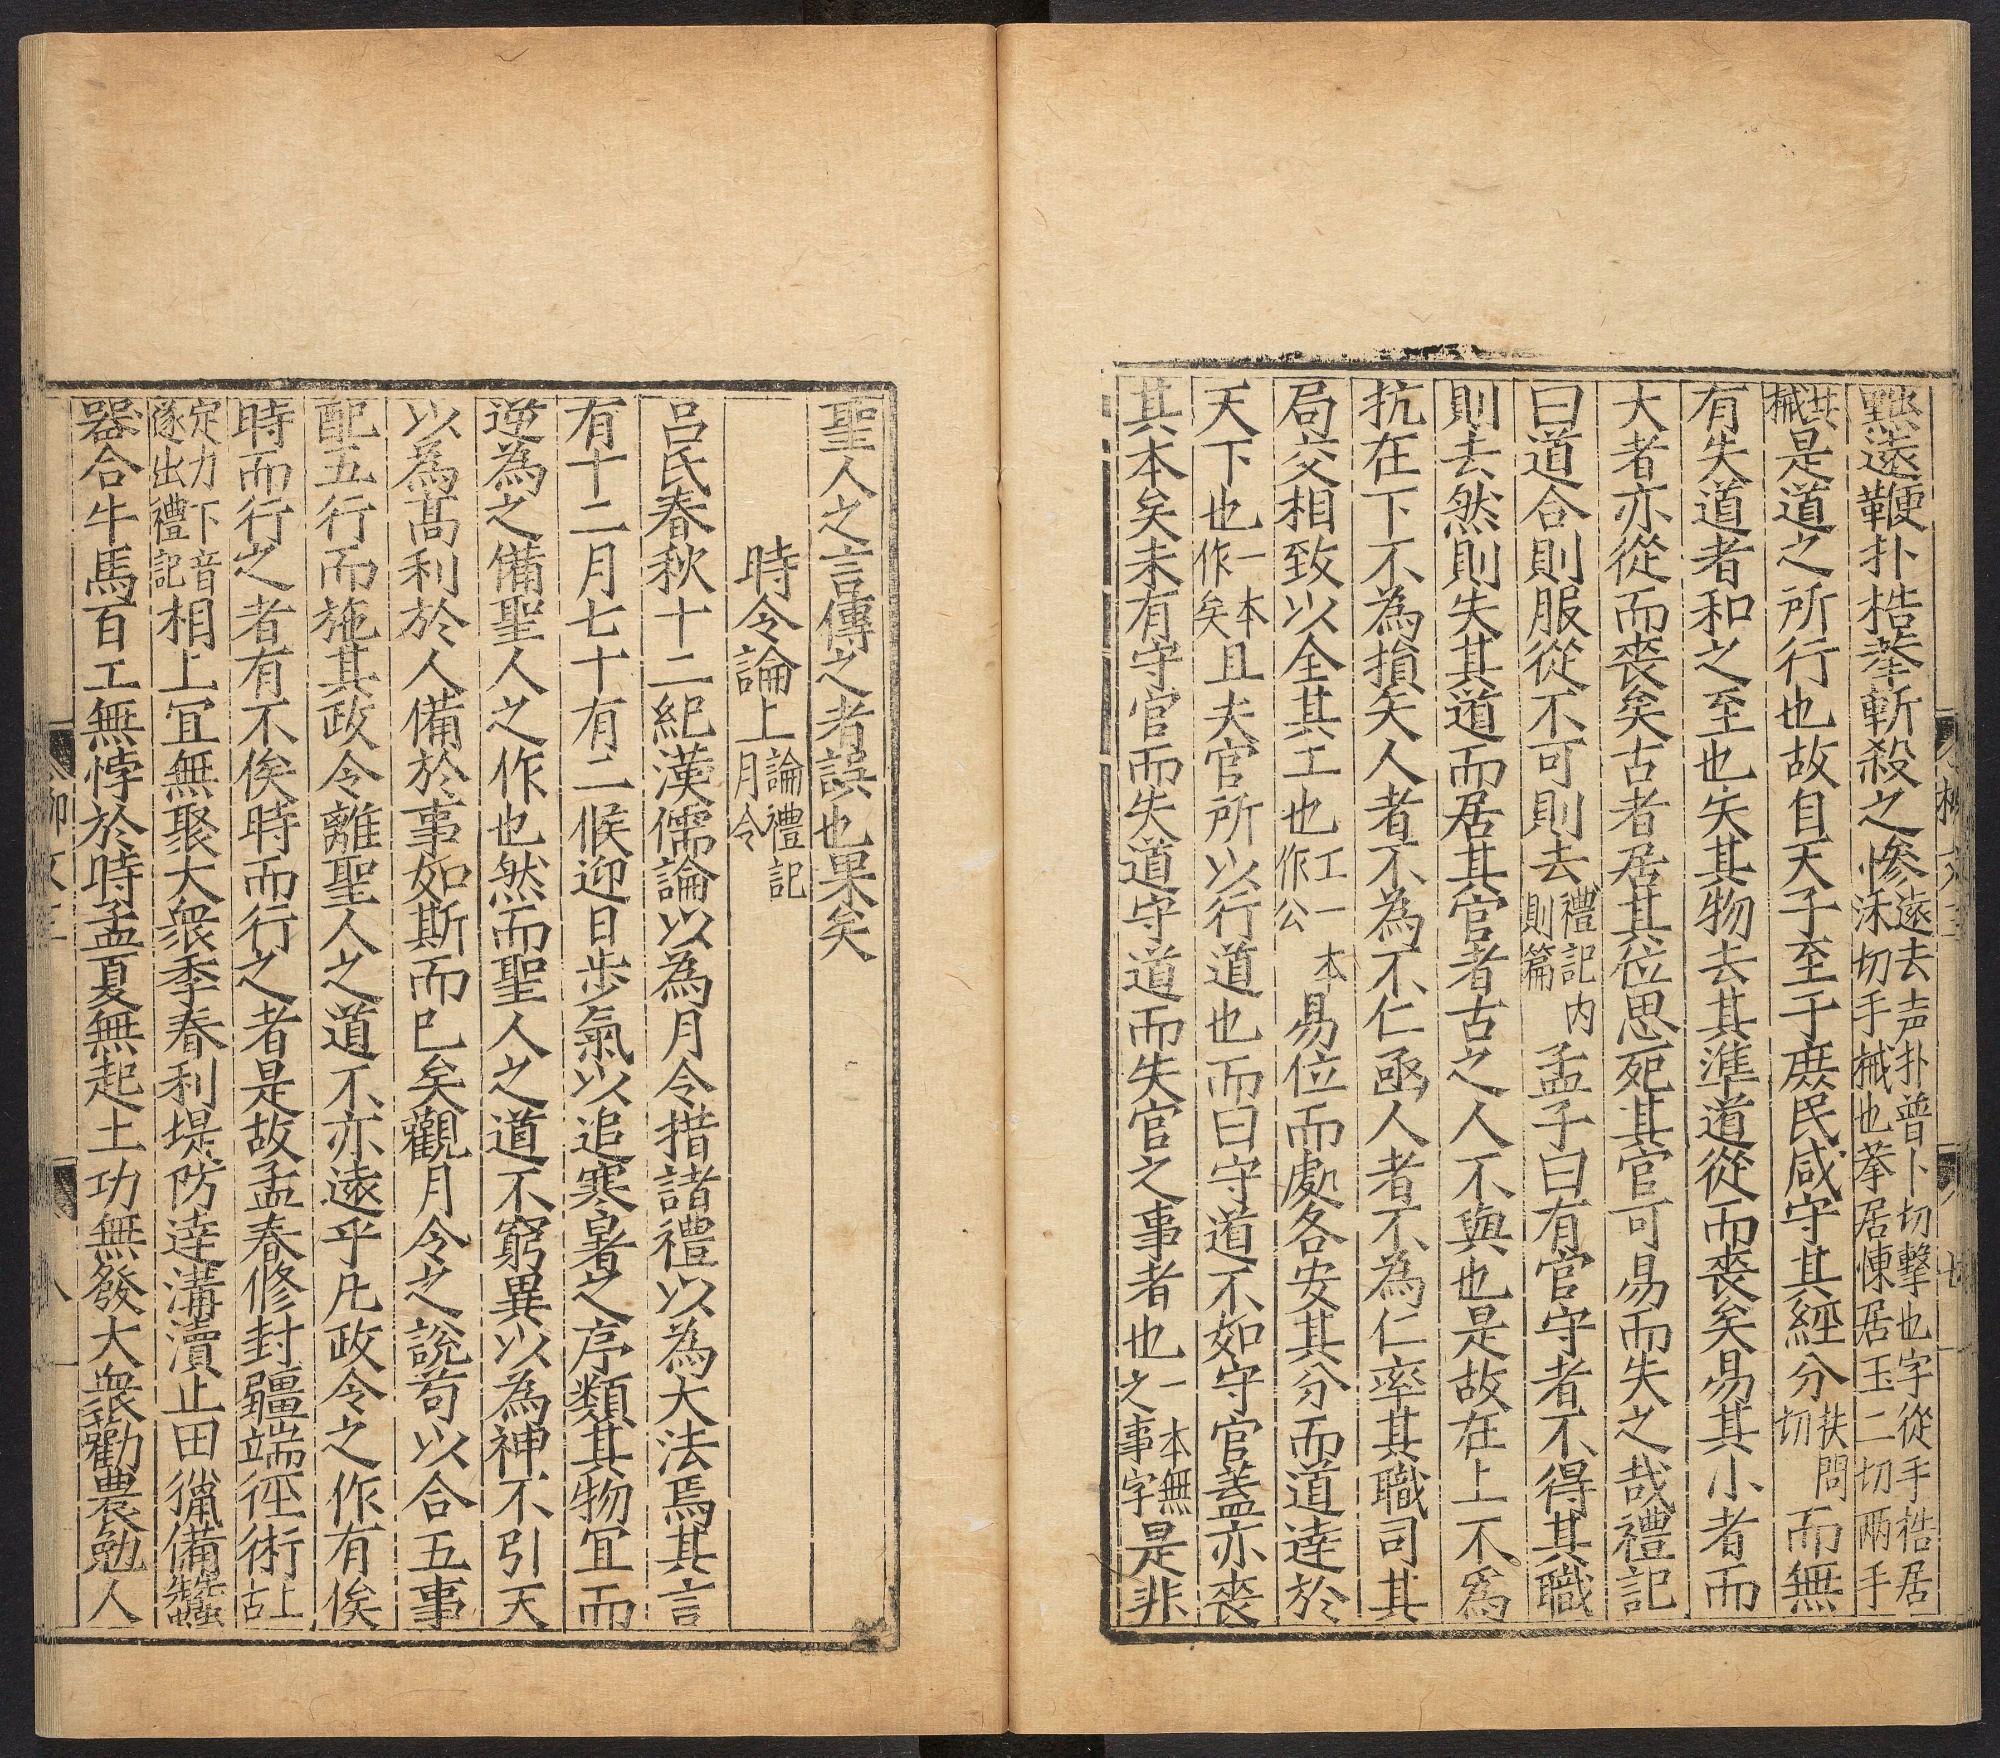 黜遠鞭扑梏拲斬殺之慘遠去声扑普卜切擊也字從手梏居
沃切手械也拲居悚居玉二切兩手
共械是道之所行也故自天子至于庶民咸守其經分扶問切而無
有失道者和之至也失其物去其準道從而喪矣易其小者而
大者亦從而喪矣古者居其位思死其官可易而失之哉禮記
曰道合則服從不可則去禮記内則篇孟子曰有官守者不得其職
則去然則失其道而居其官者古之人不與也是故在上不爲
抗在下不為損矢人者不為不仁函人者不為仁率其職司其
局交相致以全其工也工一本作公易位而處各安其分而道達於
天下也一本作矣且夫官所以行道也而曰守道不如守官蓋亦喪
其本矣未有守官而失道守道而失官之事者也一本無之事字是非
聖人之言傳之者誤也果矣
時令論上論禮記月令
呂氏春秋十二紀漢儒論以為月令措諸禮以為大法焉其言
有十二月七十有二候迎日步氣以追寒暑之序類其物宜而
逆為之備聖人之作也然而聖人之道不窮異以為神不引天
以為高利於人備於事如斯而已矣觀月令之說苟以合五事
配五行而施其政令離聖人之道不亦遠乎凡政令之作有俟
時而行之者有不俟時而行之者是故孟春修封疆端徑術上古
定力下音遂出禮記相上宜無聚大衆季春利堤防達溝瀆止田獵備蠶
器合牛馬百工無悖於時孟夏無起土功無發大衆勸農勉人
柳文三
八